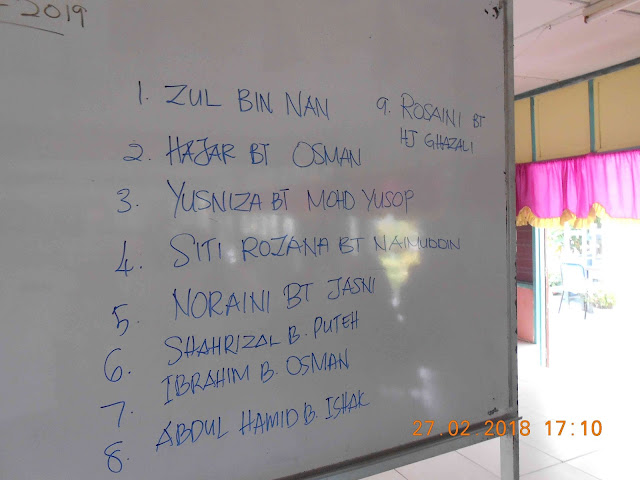 - 2019
1. ZUL BIN NAN
2. HAJAR BT OSMAN
3. YUSNIZA BT MOHD YUSOP
4. SITI ROZANA BT NAIMUDDIN
5. NORAINI BT JASNI
6. SHAHRIZAL B. PUTEH
7. IBRAHIM B. OSMAN
8. ABDUL HAMID B. ISHAK
9. ROSAINI BT
HJ GHAZALI
27.02.2018 17:10